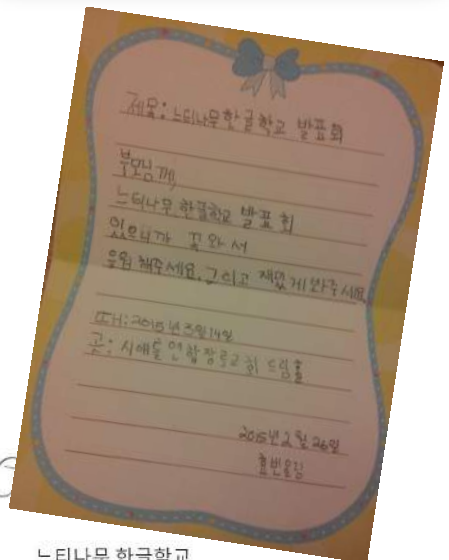 제목: 느티나무 한글학교 발표회
부모님께,
느티나무 한글학교 발표회
있으니까 꼭 와서
응원 해주세요. 그리고 재밌게 봐주세요.
때: 2015년 3월 14일
곳: 시애틀 연합장로교회 드림홀
2015년 2월 26일
올림
느티나무 한글학교